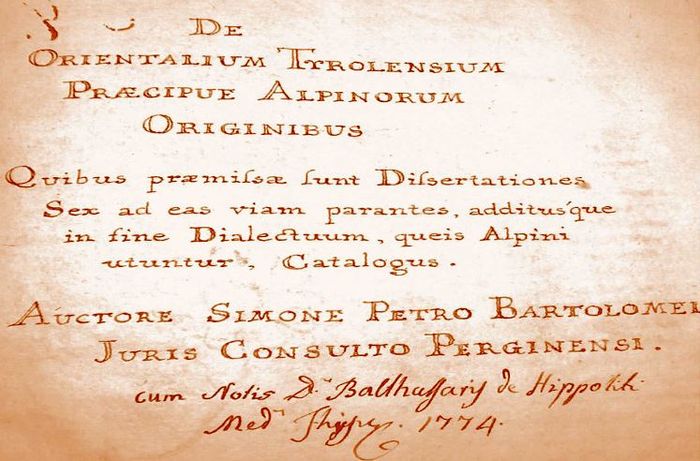 De
Orientalium Tyrolensium
Præcipue Alpinorum
Originibus
Quibus præmiſsæ ſunt Diſsertationes
Sex ad eas viam parantes, additus'que
in fine Dialectuum, queis Alpini
utuntur, Catalogus.
Auctore Simone Petro Bartolomei
Juris Consulto Perginensi.
cum Notis D. Balthaſsaris de Hippoliti
Med. 1774.